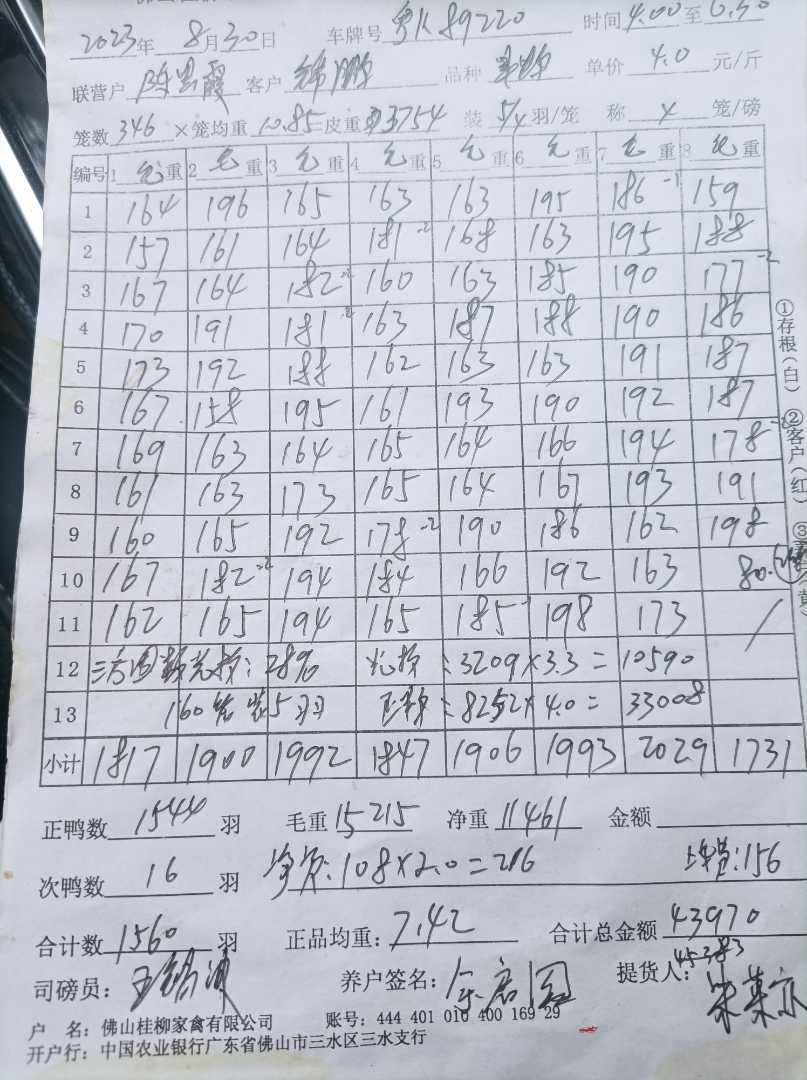 2023年 8月30日 车牌号 粤K 89220 时间 4.00至6.30
联营户 客户 韩鹏 品种 单价 4.0 元/斤
笼数 346 ×笼均重 10.85 皮重 3754 装 5/4 羽/笼 称 4 笼/磅
编号 1 毛重 2 毛重 3 毛重 4 毛重 5 毛重 6 毛重 7 毛重 8 毛重
1 164 196 165 163 163 195 186 -1 159
2 157 161 164 181 -2 168 163 195 188
3 167 164 182 -2 160 163 185 190 177 -2
4 170 191 181 -2 163 187 188 190 186
5 173 192 188 162 163 163 191 187
6 167 158 195 161 193 190 192 187
7 169 163 164 165 164 166 194 178
8 161 163 173 165 164 167 193 191
9 160 165 192 178 -2 190 186 162 198
10 167 182 -2 194 184 166 192 163 80.
11 162 165 194 165 185 198 173 /
12 28% :3209×3.3=10590
13 160笼装5羽 :8252×4.0=33008
小计 1817 1900 1992 1847 1906 1993 2029 1731
正鸭数 1544 羽 毛重 15215 净重 11461 金额
次鸭数 16 羽 :108×2.0=216 :156
合计数 1560 羽 正品均重: 7.42 合计总金额 43970
45383
司磅员: 养户签名: 提货人:
户 名: 佛山桂柳家禽有限公司 账号: 444 401 010 400 169 29
开户行: 中国农业银行广东省佛山市三水区三水支行
①存根(白) ②客户(红) ③